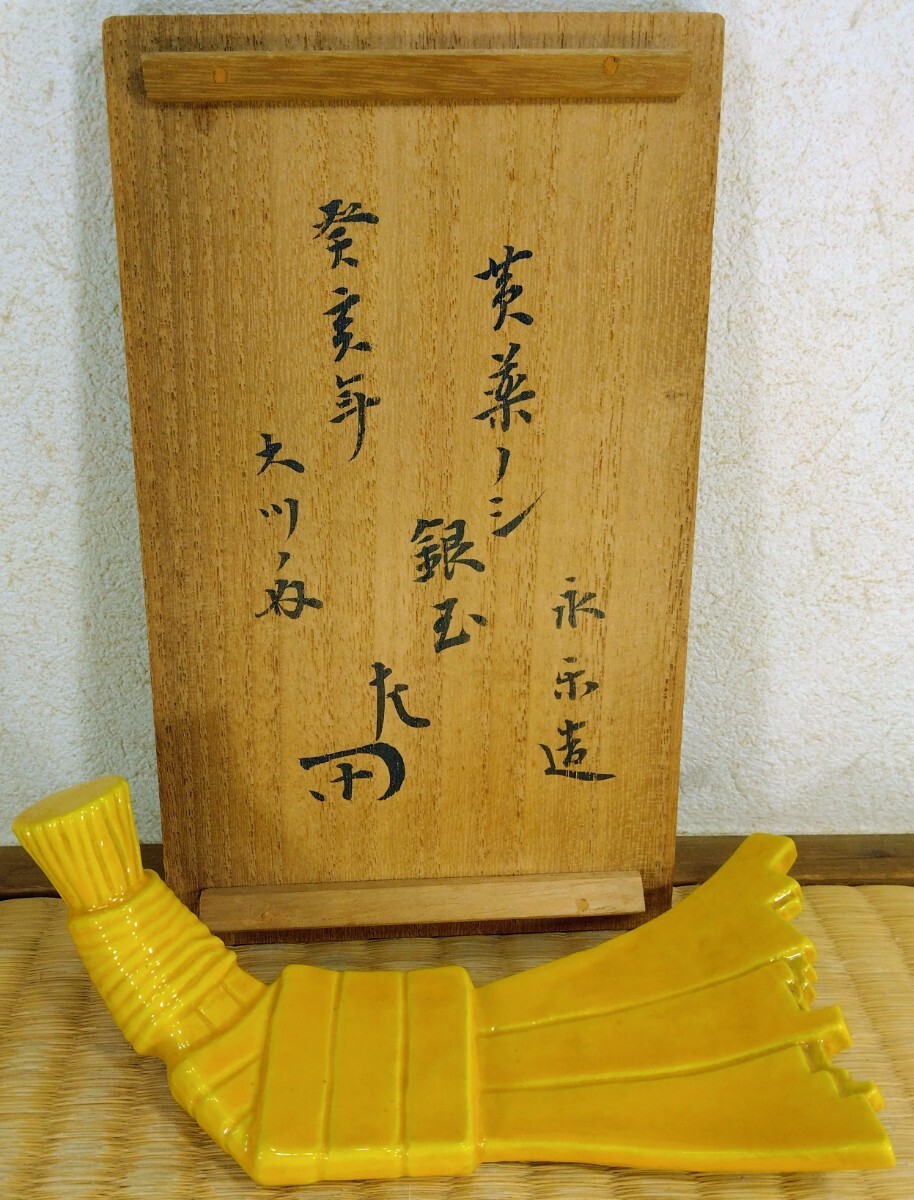 永楽造
黄薬ノシ
銀玉
左
癸亥年
大川ノ好